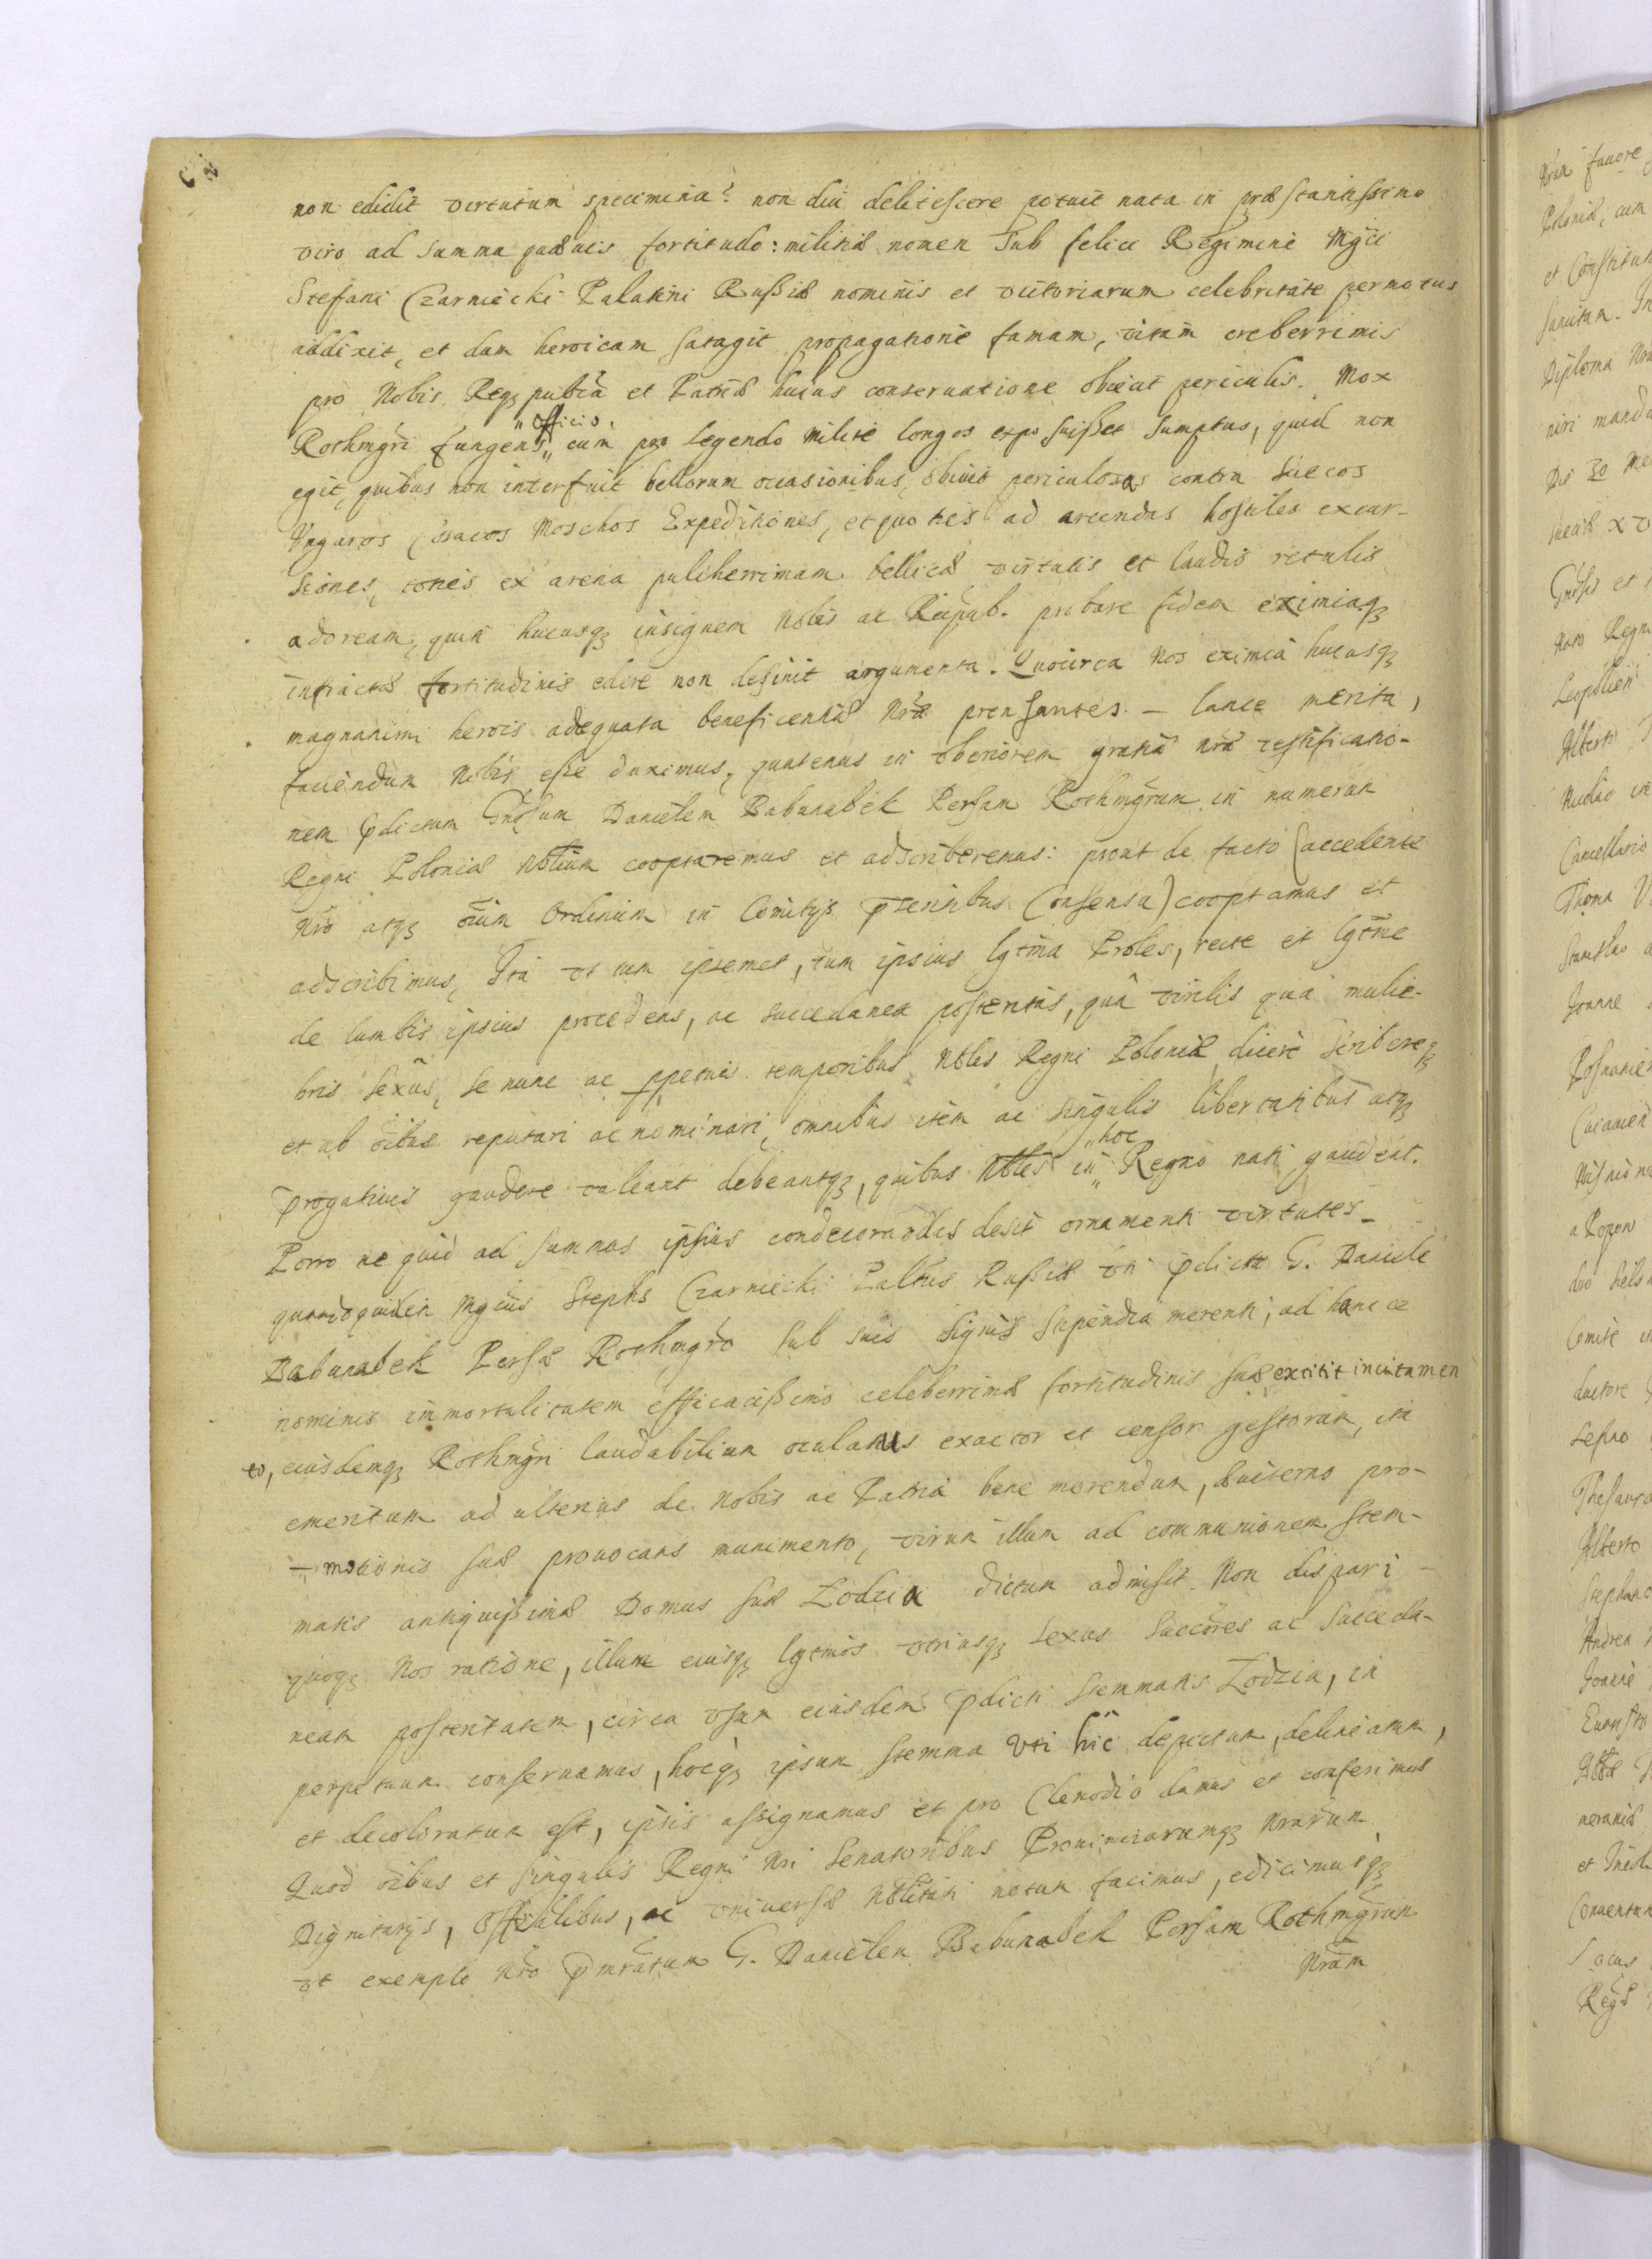 non edidit virtutum specimina? non diu delitescere potuit nata in præstantissimo
viro ad summa quævis fortitudo: militiæ nomen sub felici Regimine Mgci
Stefani Czarniecki Palatini Russiæ nominis et victoriarum celebritate permotus
addixit, et dum heroicam satagit propagatione famam, vitam creberrimis
pro Nobis Reqz publca et Patriæ huius conservatione obiecit periculis. Mox
Rothmgri fungens officio, cum pro legendo milite longos exposuisset sumptus, quid non
egit, quibus non interfuit bellorum occasionibus, obiuit periculosas contra Suecos
Vngaros Cosacos Moschos Expeditiones, et quoties ad arcendas hostiles excur-
siones, toties ex arena pulcherrimam bellicæ virtutis et laudis retulit
adoream, quin hucusqz insignem Nobis ac Reipub. probare fidem eximiaqz
infractæ fortitudinis edere non desinit argumenta. Quocirca Nos eximia hucusqz
magnanimi herois adequata beneficentiæ Nræ prensantes - lance merita,
faciendum Nobis esse duximus, quatenus in vberiorem gratiæ nræ testificatio-
nem pdictum Gnosum Danielem Babunabek Persam Rothmgrum in numerum
Regni Poloniæ Nblium cooptaremus et adscriberemus: prout de facto (accedente
Nro atqz oium Ordinum in Comitijs psentibus Consensu) cooptamus et
adscribimus, Ita vt tum ipsemet, tum ipsius lgtma Proles, recte et lgtme
de lumbis ipsius procedens, ac succedanea posteritas, quà virilis quà mulie-
bris sexûs, se nunc ac ppetuis temporibus Nbles Regni Poloniæ dicere scribereqz
et ab oibus reputari ac nominari, omnibus item ac singulis libertatibus atqz
progatiuis gaudere valeant debeantqz, quibus Nbles in hoc Regno nati gaudent.
Porro ne quid ad summas ipsius condecorandas desit ornamenti virtutes -
quandoquidem Mgcus Stephs Czarniecki Palnus Russiæ vti pdicto G. Daniele
Babunabek Persæ Rothmgro sub suis signis stipendia merenti, ad hanc ce
nominis immortalitatem efficacissimo celeberrimæ fortitudinis suæ extitit incitamen
to, eiusdemqz Rothmgri laudabilium oculatus exactor et censor gestorum, ita
emeritum ad vlterius de Nobis ac Patria bene merendum, suiterno pro-
- motionis suæ prouocans munimento, virum illum ad communionem stem-
matis antiquissimæ Domus suæ Lodzia dictum admisit. Non dispari -
quoqz Nos ratione, illum eiusqz lgtmos vtriusqz sexus succores ac succeda-
neam posteritatem, circa vsum eiusdem pdicti stemmatis Lodzia, in
perpetuum conseruamus, hocqz ipsum stemma vti hic depictum, delineatum,
et decoloratum est, ipsis assignamus et pro Clenodio damus et conferimus
Quod oibus et singulis Regni Nri Senatoribus Prouinciarumqz Nrarum
Dignitarijs, Officialibus, ac vniuersæ Nblitati notum facimus, edicimusqz
vt exemplo Nro pmratum G. Danielem Babunabek Persam Rothmgrum
Nrum